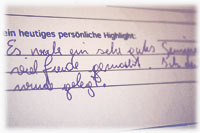 ein heutiges persönliche Highlight:
Es war ein sehr gutes Seminar
viel Freude gemacht. Ich
wurde gelegt.